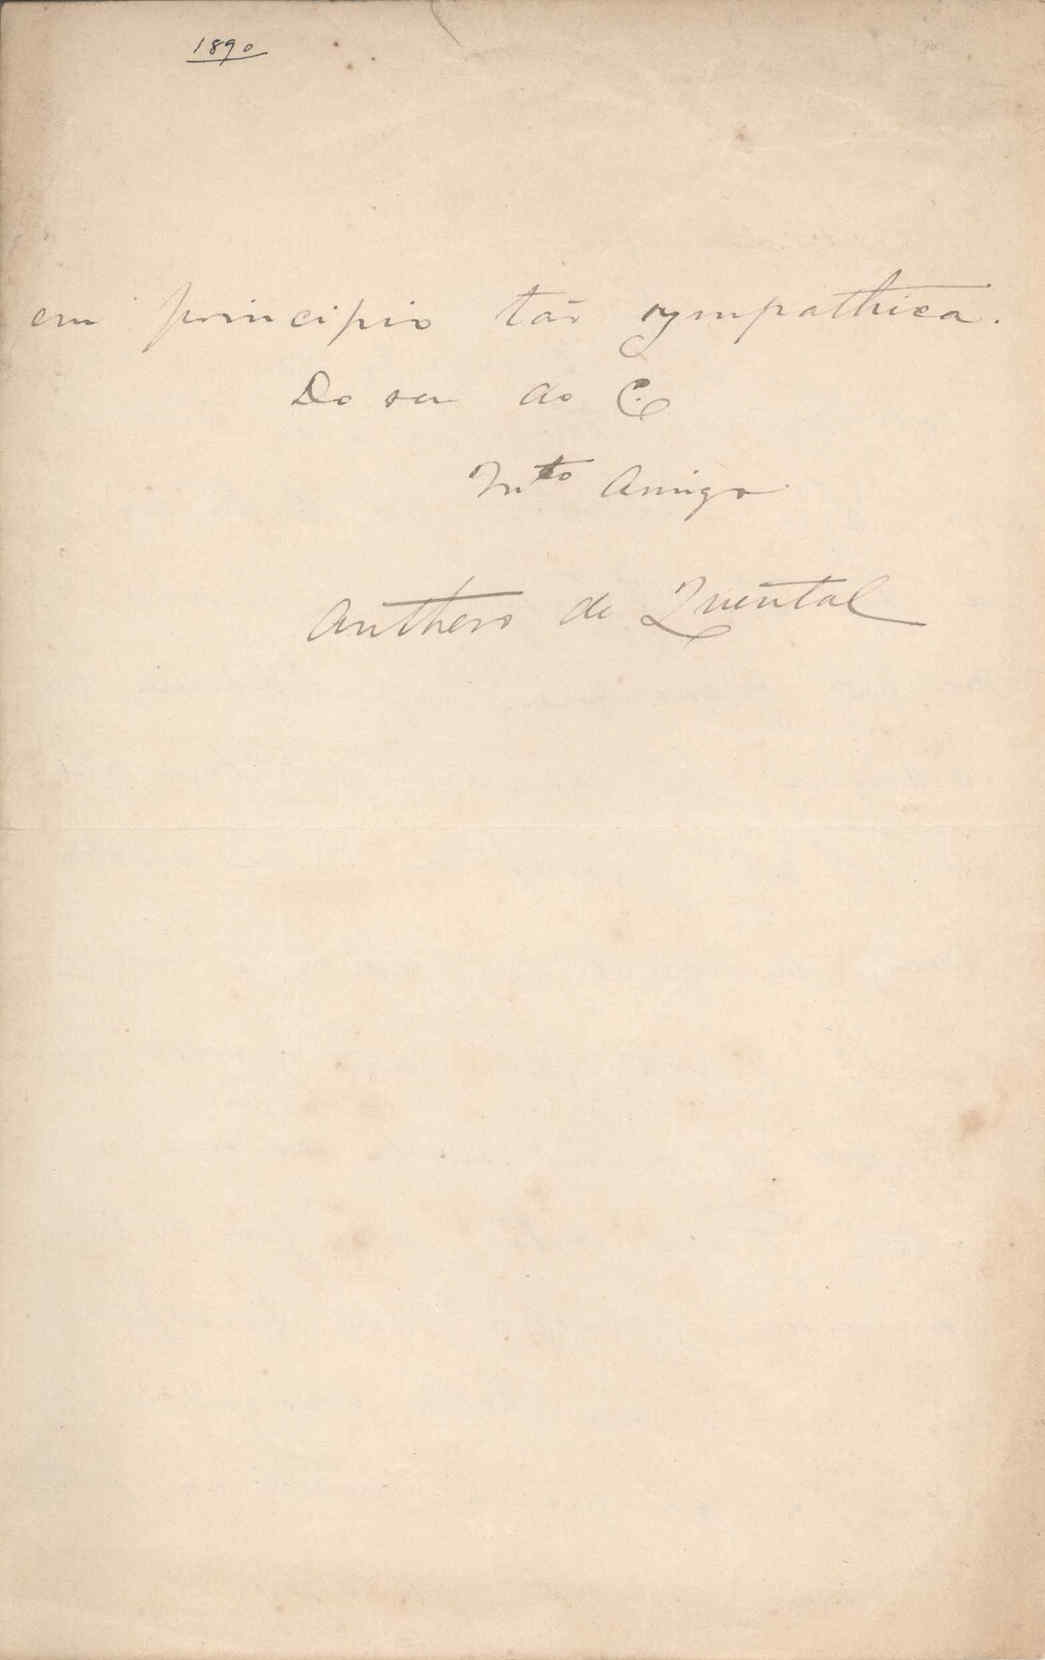 1890
em principio tão sympathica.
Do seu ao C.
Mto Amigo
Anthero de Quental